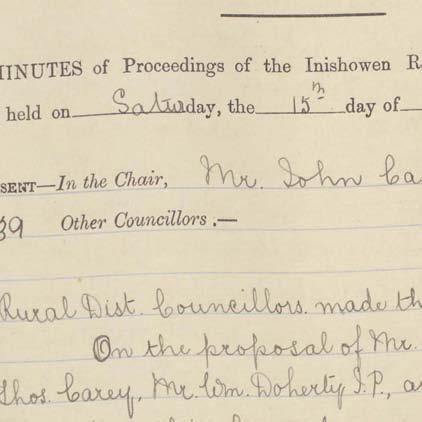 MINUTES of Proceedings of the Inishowen R
held on Saturday, the 15th day of
SENT—In the Chair, Mr. John Ca
39 Other Councillors.—
Rural Dist. Councillors. made th
On the proposal of Mr.
Thos. Carey, Mr. Wm. Doherty J.P., a